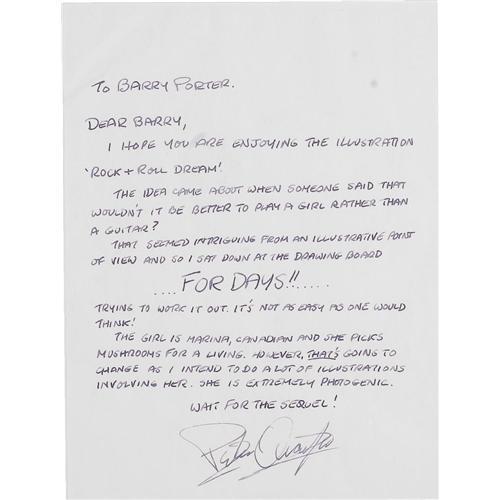 TO BARRY PORTER.
DEAR BARRY,
I HOPE YOU ARE ENJOYING THE ILLUSTRATION
'ROCK + ROLL DREAM'.
THE IDEA CAME ABOUT WHEN SOMEONE SAID THAT
WOULDN'T IT BE BETTER TO PLAY A GIRL RATHER THAN
A GUITAR?
THAT SEEMED INTRIGUING FROM AN ILLUSTRATIVE POINT
OF VIEW AND SO I SAT DOWN AT THE DRAWING BOARD
....FOR DAYS!!......
TRYING TO WORK IT OUT. IT'S NOT AS EASY AS ONE WOULD
THINK!
THE GIRL IS MARINA, CANADIAN AND SHE PICKS
MUSHROOMS FOR A LIVING. HOWEVER, THAT'S GOING TO
CHANGE AS I INTEND TO DO A LOT OF ILLUSTRATIONS
INVOLVING HER. SHE IS EXTREMELY PHOTOGENIC.
WAIT FOR THE SEQUEL!